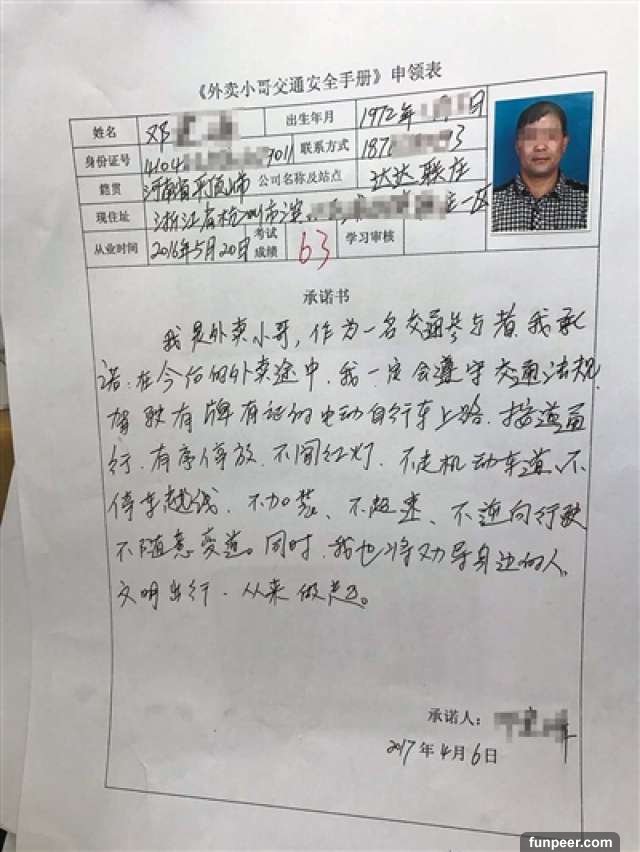 《外卖小哥交通安全手册》申领表
姓名 邓 出生年月 1972年 日
身份证号 4104 7011 联系方式 187 3
籍贯 河南省平顶山市 公司名称及站点 达达 联庄
现住址 浙江省杭州市滨 一区
从业时间 2016年5月20日 考试成绩 63 学习审核
承诺书
我是外卖小哥,作为一名交通参与者,我承
诺:在今后的外卖途中,我一定会遵守交通法规,
驾驶有牌有证的电动自行车上路、按道通
行、有序停放、不闯红灯、不走机动车道、不
停车越线、不加装、不超速、不逆向行驶
不随意变道。同时,我也将劝导身边的人,
文明出行,从我做起。
承诺人:
2017年4月6日
funpeer.com